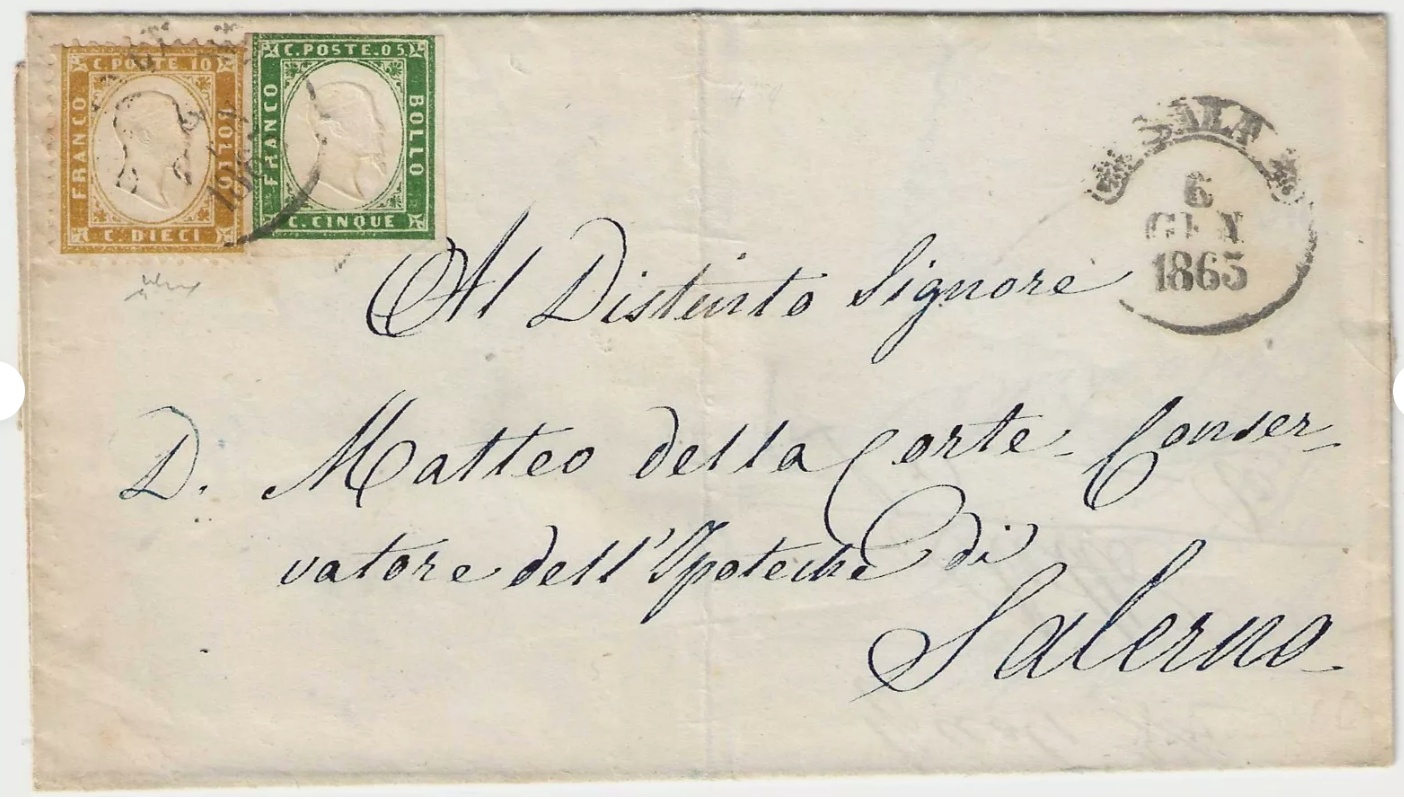 C. POSTE 10
FRANCO
BOLLO
C. DIECI
C. POSTE. 05
FRANCO
BOLLO
C. CINQUE
SALA
6
GEN
1863
Al Distinto Signore
D. Matteo della Corte Conser-
vatore dell'Ipoteche di
Salerno